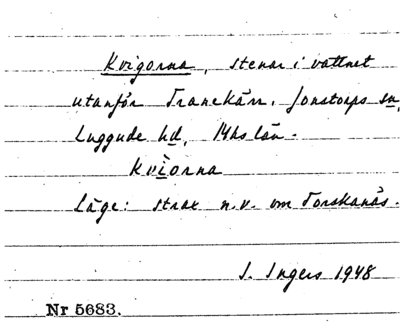 Kvigorna, stenar i vattnet
utanför Tranekärr, Jonstorps sn,
Luggude hd, Mhs län.
Kvìorna
Läge: strax n.v. om Torskanäs.
I. Ingers 1948
Nr 5683.